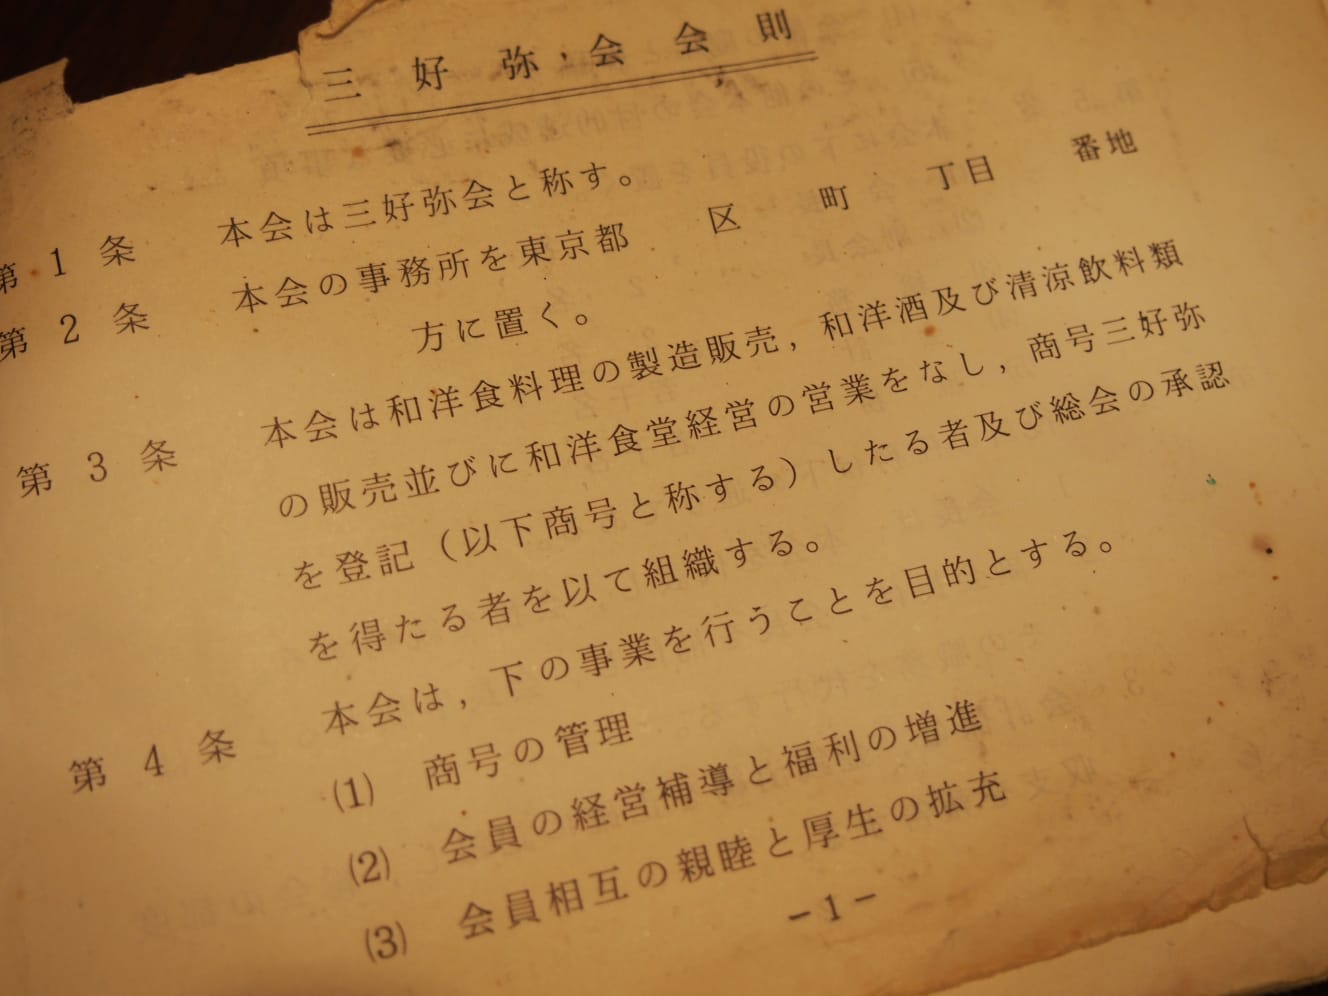 三好弥会会則
第1条 本会は三好弥会と称す。
第2条 本会の事務所を東京都 区 町 丁目 番地
方に置く。
第3条 本会は和洋食料理の製造販売,和洋酒及び清涼飲料類
の販売並びに和洋食堂経営の営業をなし,商号三好弥
を登記(以下商号と称する)したる者及び総会の承認
を得たる者を以て組織する。
第4条 本会は,下の事業を行うことを目的とする。
(1) 商号の管理
(2) 会員の経営補導と福利の増進
(3) 会員相互の親睦と厚生の拡充
-1-